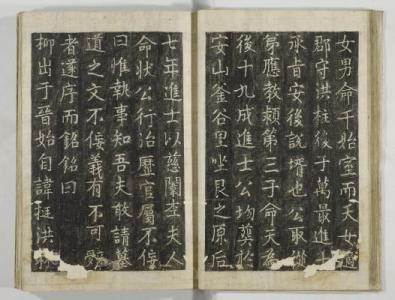 女男命千始室而夭女適
郡守洪柱後子萬最進士
承旨安後說壻也公取
弟應敎穎第三子命天爲
後十九成進士公均葬於
安山釜谷里坐艮之原后
七年進士以慈闈李夫人
命狀公行治歷官屬不佞
曰惟執事知吾夫敢請墓
道之文不佞義有不可辭
者遂序而銘銘曰
柳出于晉始自諱挺洪